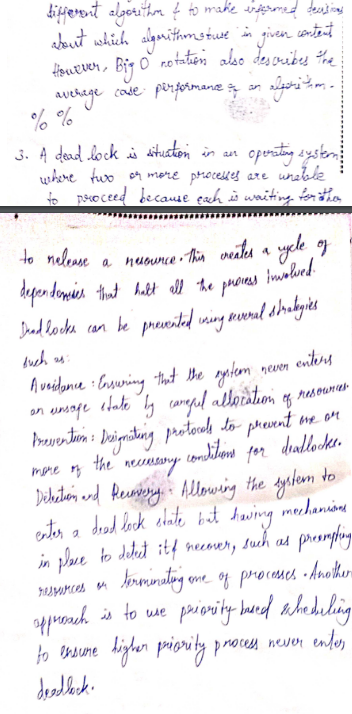 different algorithm & to make informed decisions
about which algorithm to use in given content
However, Big O notation also describes the
average case performance of an algorithm.
% %
3. A dead lock is situation in an operating system
where two or more processes are unable
to proceed because each is waiting for other
to release a resource. This creates a cycle of
dependencies that halt all the process involved.
Dead locks can be prevented using several strategies
such as:
Avoidance: Ensuring that the system never enters
an unsafe state by careful allocation of resources.
Prevention: Designating protocols to prevent one or
more of the necessary conditions for deadlocks.
Detection and Recovery: Allowing the system to
enter a dead lock state but having mechanisms
in place to detect it & recover, such as preempting
resources or terminating one of processes. Another
approach is to use priority-based scheduling
to ensure higher priority process never enter
deadlock.